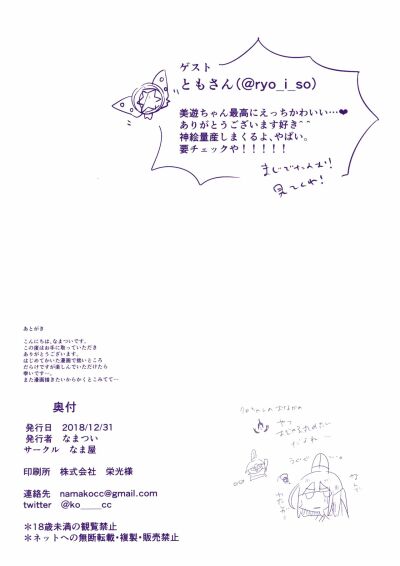 ゲスト
ともさん(@ryo_i_so)
美遊ちゃん最高にえっちかわいい…❤
ありがとうございます好き^^
神絵量産しまくるよ、やばい。
要チェックや！！！！！
見てくれ！
あとがき
こんにちは、なまついです。
この度はお手に取っていただき
ありがとうございます。
はじめてかいた漫画で拙いところ
だらけですが楽しんでいただけたら
幸いです…。
また漫画描きたいからかくとこみてて…
奥付
発行日 2018/12/31
発行者 なまつい
サークル なま屋
印刷所 株式会社 栄光様
連絡先 namakocc@gmail.com
twitter @ko____cc
＊18歳未満の観覧禁止
＊ネットへの無断転載・複製・販売禁止